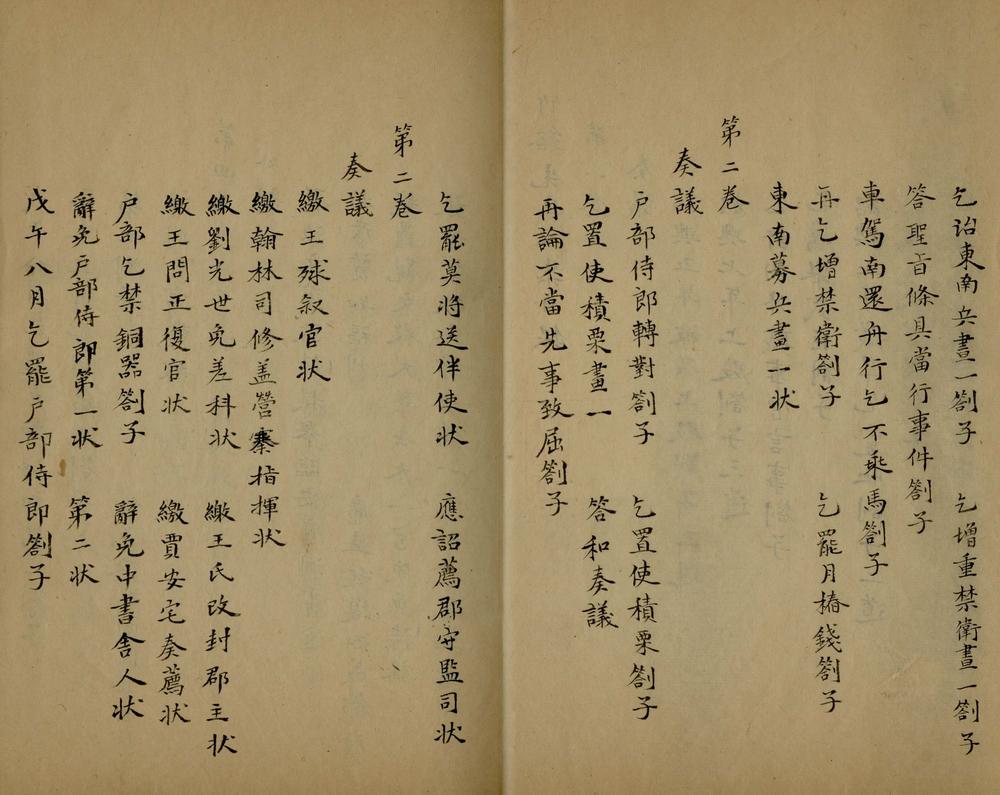 乞詔東南兵畫一劄子　乞增重禁衛畫一劄子
答聖旨條具當行事件劄子
車駕南還舟行乞不乘馬劄子
再乞增禁衛劄子　乞罷月樁錢劄子
東南募兵畫一状
第二卷
奏議
户部侍郎轉對劄子　乞置使積粟劄子
乞置使積粟畫一　答和奏議
再論不當先事致屈劄子
乞罷莫將送伴使状　應詔薦郡守監司状
第二卷
奏議
繳王球叙官状
繳翰林司修盖營寨指揮状
繳劉光世免差科状　繳王氏改封郡主状
繳王問正復官状　繳賈安宅奏薦状
户部乞禁銅器劄子　辭免中書舍人状
辭免户部侍郎第一状　第二状
戊午八月乞罷户部侍郎劄子